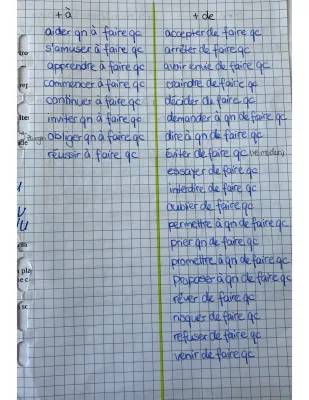 + à
aider qn à faire qc
s'amuser à faire qc
apprendre à faire qc
commencer à faire qc
continuer à faire qc
inviter qn à faire qc
obliger qn à faire qc
réussir à faire qc
+ de
accepter de faire qc
arrêter de faire qc
avoir envie de faire qc
craindre de faire qc
décider de faire qc
demander à qn de faire qc
dire à qn de faire qc
éviter de faire qc (vermeiden)
essayer de faire qc
interdire de faire qc
oublier de faire qc
permettre à qn de faire qc
prier qn de faire qc
promettre à qn de faire qc
proposer à qn de faire qc
rêver de faire qc
risquer de faire qc
refuser de faire qc
venir de faire qc